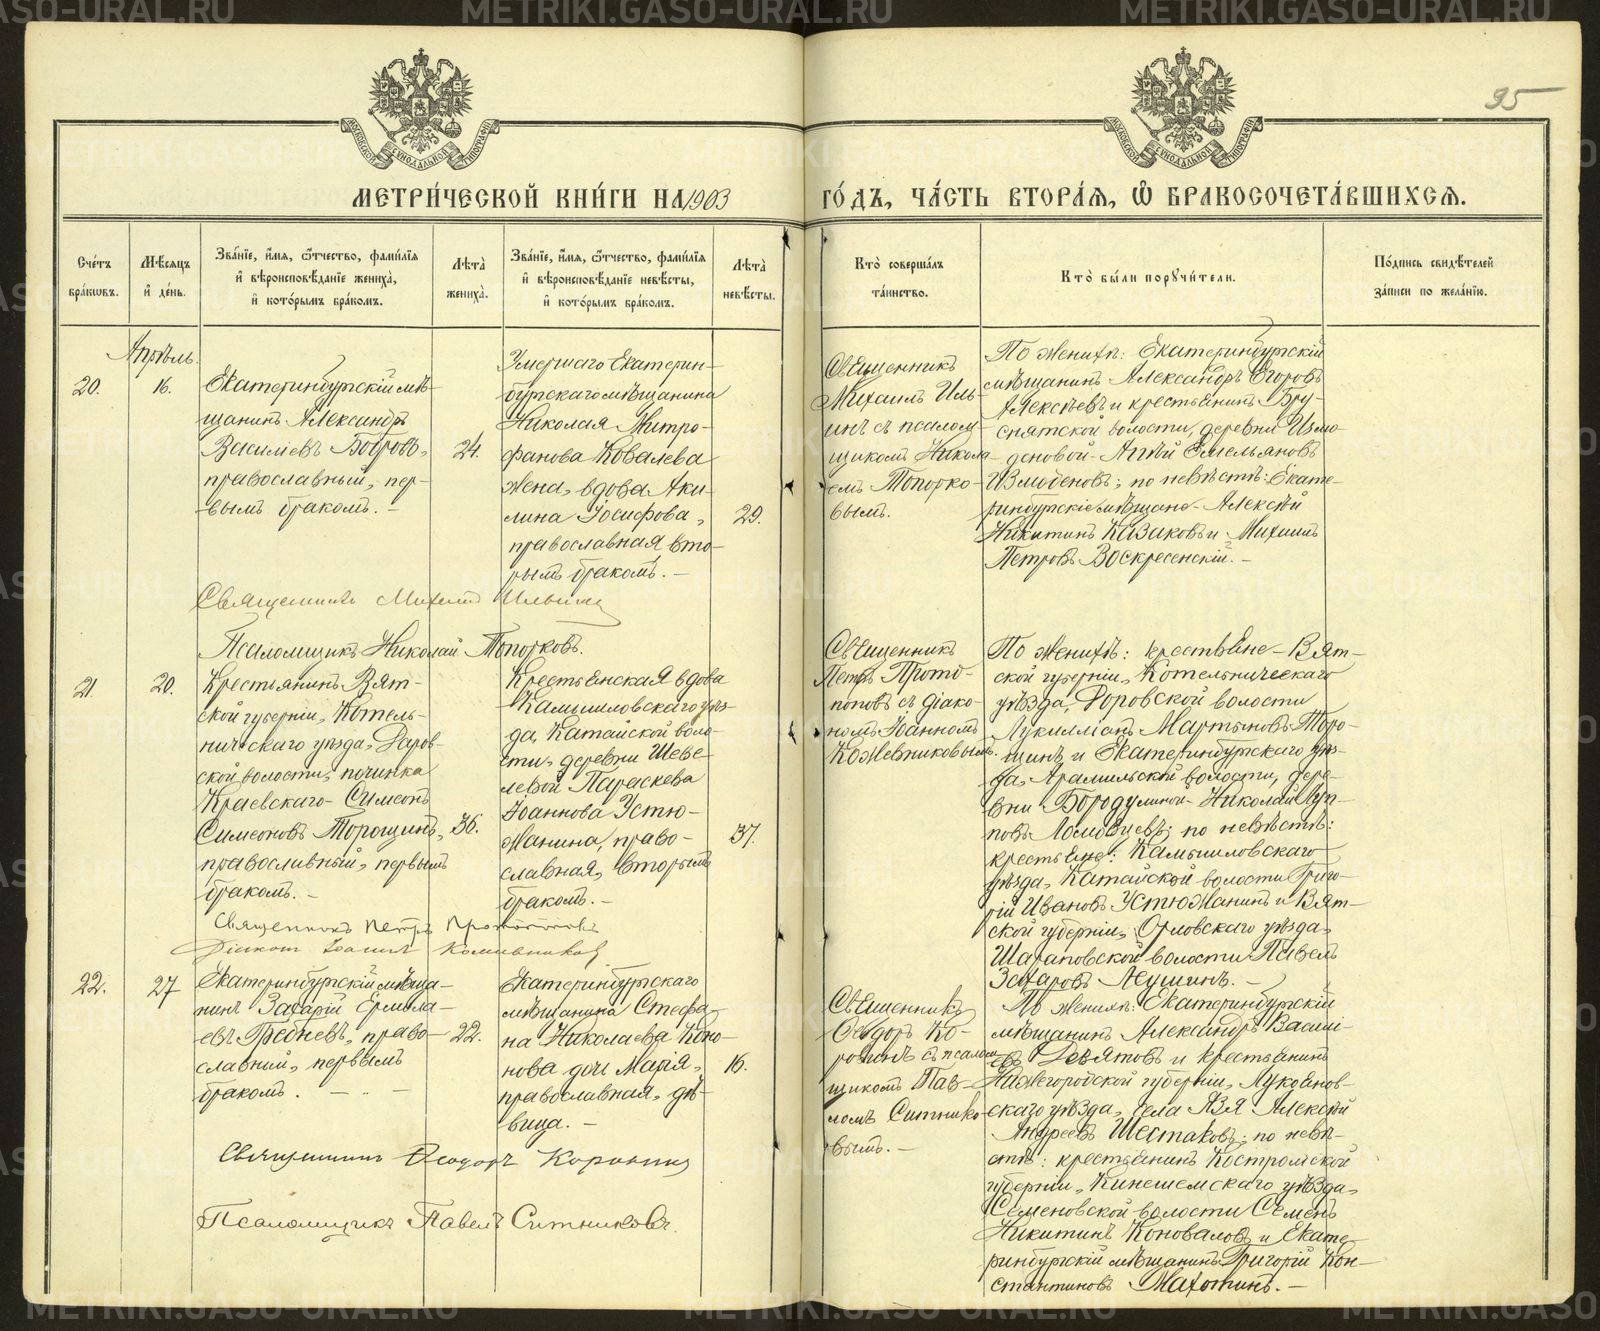 METRIKI.GASO-URAL.RU
95
МОСКОВСКОЙ СѴНОДАЛЬНОЙ ТИПОГРАФІИ
МЕТРИ́ЧЕСКОЙ КНИ́ГИ НА 1903
ГО́ДЪ, ЧА́СТЬ ВТОРА́Я, Ѡ҆ БРАКОСОЧЕТА́ВШИХСЯ.
Сче́тъ бра́кѡвъ.
Мѣ́сяцъ и҆ де́нь.
Зва́нїе, и҆́мя, ѻ҆́тчество, фами́лїя и҆ вѣроисповѣ́данїе жениха̀, и҆ кото́рымъ бра́комъ.
Лѣ́та жениха̀.
Зва́нїе, и҆́мя, ѻ҆́тчество, фами́лїя и҆ вѣроисповѣ́данїе невѣ́сты, и҆ кото́рымъ бра́комъ.
Лѣ́та невѣ́сты.
Кто̀ соверша́лъ та́инство.
Кто̀ бы́ли порꙋчи́тели.
По́дпись свидѣ́телей за́писи по жела́нїю.
Апрѣль.
20.
16.
Екатеринбургскій мѣ-
щанинъ Александръ
Васильевъ Бобровъ,
православный, пер-
вымъ бракомъ. -
24.
Умершаго Екатерин-
бургскаго мѣщанина
Николая Митро-
фанова Ковалева
жена, вдова Аки-
лина Іосифова,
православная вто-
рымъ бракомъ. -
29.
Священникъ
Михаилъ Иль-
инъ съ псалом-
щикомъ Никола-
емъ Топорко-
вымъ.
По женихѣ: Екатеринбургскій
мѣщанинъ Александръ Егоровъ
Алексѣевъ и крестьянинъ Бру-
снятской волости, деревни Измо-
деновой - Агѣй Емельяновъ
Измоденовъ; по невѣстѣ: Екате-
ринбургскіе мѣщане - Алексѣй
Никитинъ Казаковъ и Михаилъ
Петровъ Воскресенскій. -
Священникъ Михаилъ Ильинъ
Псаломщикъ Николай Топорковъ.
21.
20.
Крестьянинъ Вят-
ской губерніи, Котель-
ничскаго уѣзда, Даров-
ской волости, починка
Краевскаго - Симеонъ
Симеоновъ Торощинъ,
православный, первымъ
бракомъ. -
36.
Крестьянская вдова
Камышловскаго уѣз-
да, Катайской воло-
сти, деревни Шеве-
левой Параскева
Іоаннова Устю-
жанина, право-
славная, вторымъ
бракомъ. -
37.
Священникъ
Петръ Прото-
поповъ съ діако-
номъ Іоанномъ
Кожевниковымъ.
По женихѣ: крестьяне - Вят-
ской губерніи, Котельническаго
уѣзда, Даровской волости
Лукилліанъ Мартыновъ Торо-
щинъ и Екатеринбургскаго уѣз-
да, Арамильской волости, дере-
вни Бородулиной - Николай
повъ Ломовцевъ; по невѣстѣ:
крестьяне: Камышловскаго
уѣзда, Катайской волости Григо-
рій Ивановъ Устюжанинъ и Вят-
ской губерніи, Орловскаго уѣзда,
Шарановской волости Павелъ
Захаровъ Леушинъ. -
Священникъ Петръ Протопоповъ
Діаконъ Іоаннъ Кожевниковъ
22.
27
Екатеринбургскій мѣща-
нинъ Захарій Ермола-
евъ Гребневъ, право-
славный, первымъ
бракомъ. -
22.
Екатеринбургскаго
мѣщанина Стефа-
на Николаева Коно-
нова дочь Марія,
православная, дѣ-
вица. -
16.
Священникъ
Ѳеодоръ Ко-
ровинъ съ псалом-
щикомъ Пав-
ломъ Ситнико-
вымъ. -
По женихѣ: Екатеринбургскій
мѣщанинъ Александръ Васильь-
евъ Девятовъ и крестьянинъ
Нижегородской губерніи, Лукоянов-
скаго уѣзда, села Азя Алексѣй
Андреевъ Шестаковъ; по невѣ-
стѣ: крестьянинъ Костромской
губерніи, Кинешемскаго уѣзда,
Семеновской волости Семенъ
Никитинъ Коноваловъ и Екате-
ринбургскій мѣщанинъ Григорій Кон-
стантиновъ Махотинъ. -
Священникъ Ѳеодоръ Коровинъ
Псаломщикъ Павелъ Ситниковъ.